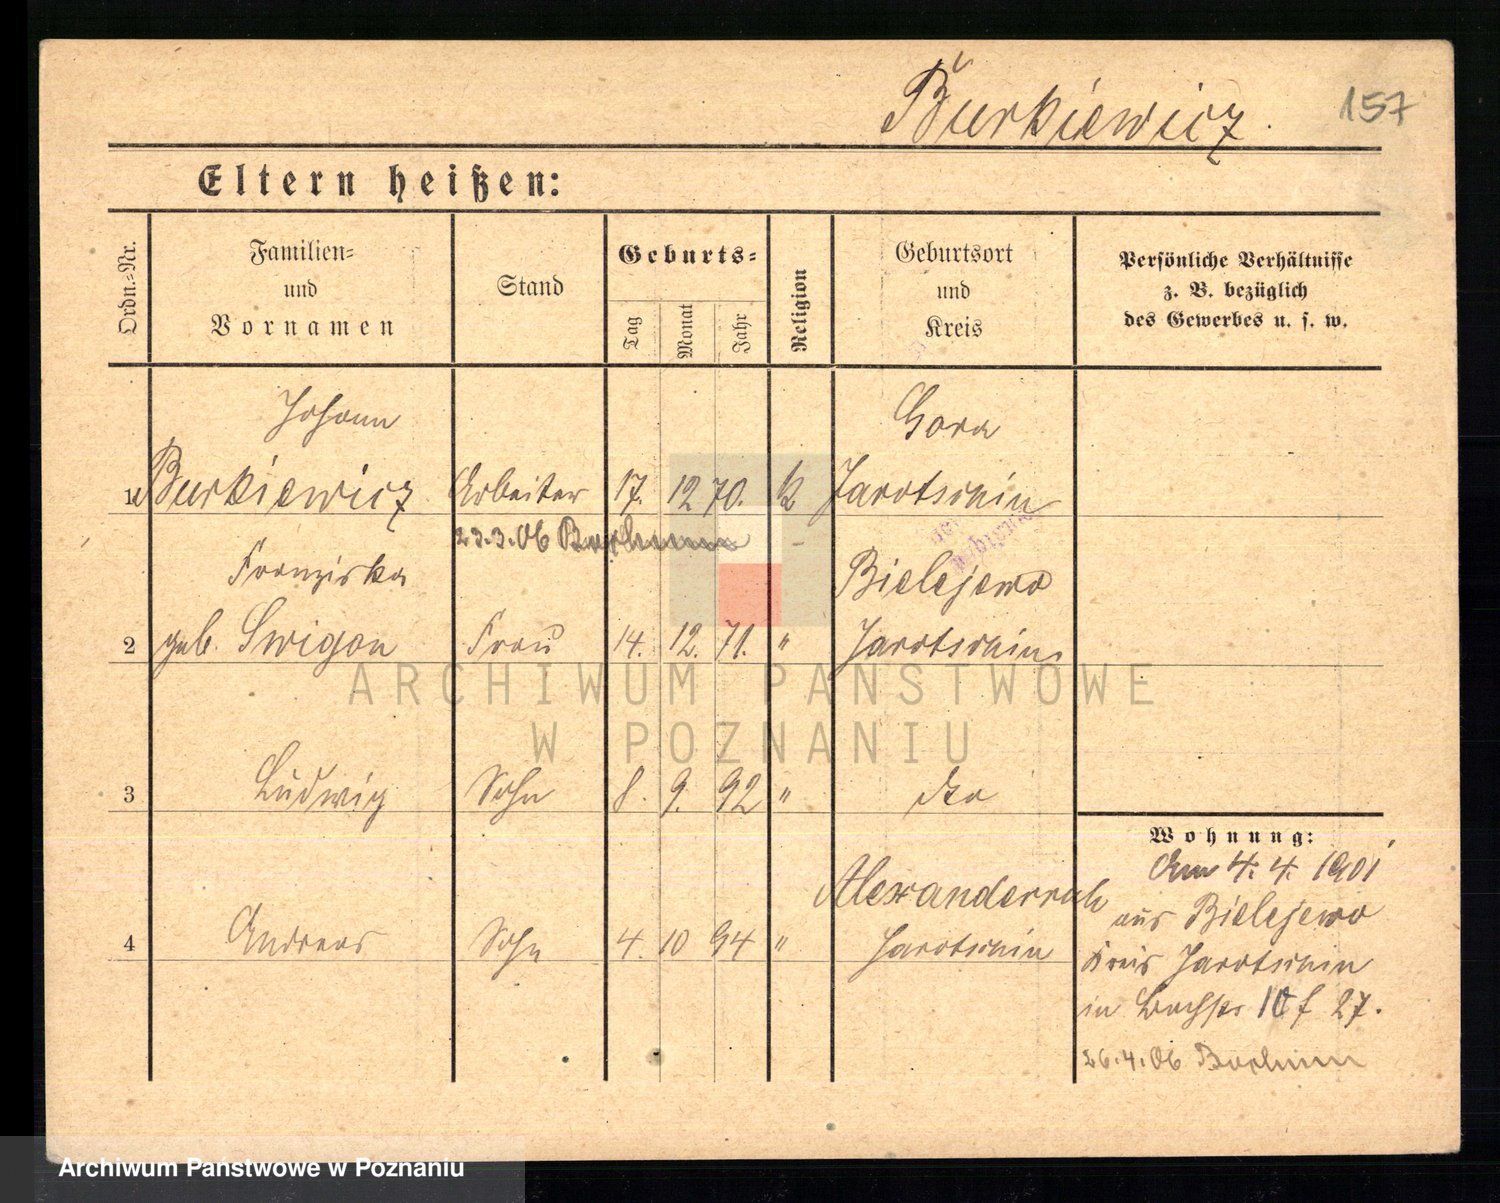 Burkiewicz.
157
Eltern heißen:
Ordn.-Nr.
Familien-
und
Vornamen
Stand
Geburts-
Tag
Monat
Jahr
Religion
Geburtsort
und
Kreis
Persönliche Verhältnisse
z. B. bezüglich
des Gewerbes u. s. w.
Johann
Gora
1 Burkiewicz Arbeiter 17. 12 70. k Jarotschin
23.3.06 Bochum
Franziska
Bielejewo
2 geb. Swigon Frau 14. 12. 71. " Jarotschin
ARCHIWUM PAŃSTWOWE
W POZNANIU
3 Ludwig Sohn 8. 9. 92 " dto
Alexanderruh
4 Andreas Sohn 4. 10 94 " Jarotschin
Wohnung:
Am 4. 4. 1901
aus Bielejewo
Kreis Jarotschin
in 27.
26.4.06 Bochum
Archiwum Państwowe w Poznaniu